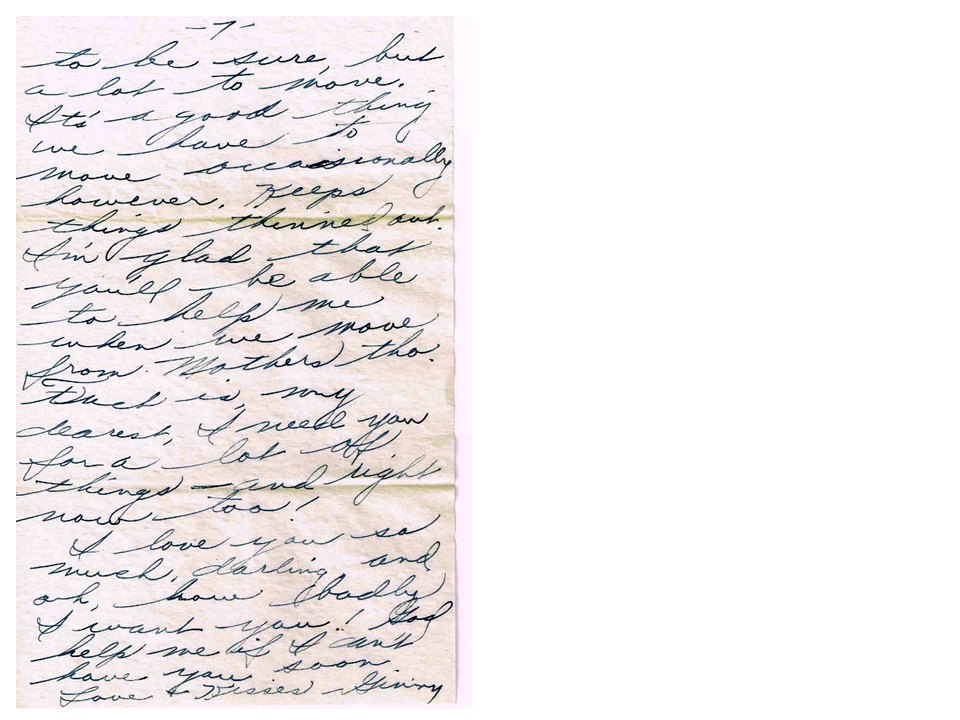 -7-
to be sure, but
a lot to move.
It's a good thing
we have to
move occaisionally
however. Keeps
things thinned out.
I'm glad that
you'll be able
to help me
when we move
from Mothers tho.
Fact is, my
dearest, I need you
for a lot of
things - and right
now too!
I love you so
much, darling and,
oh, how badly
I want you! God
help me if I can't
have you soon.
Love & Kisses - Ginny